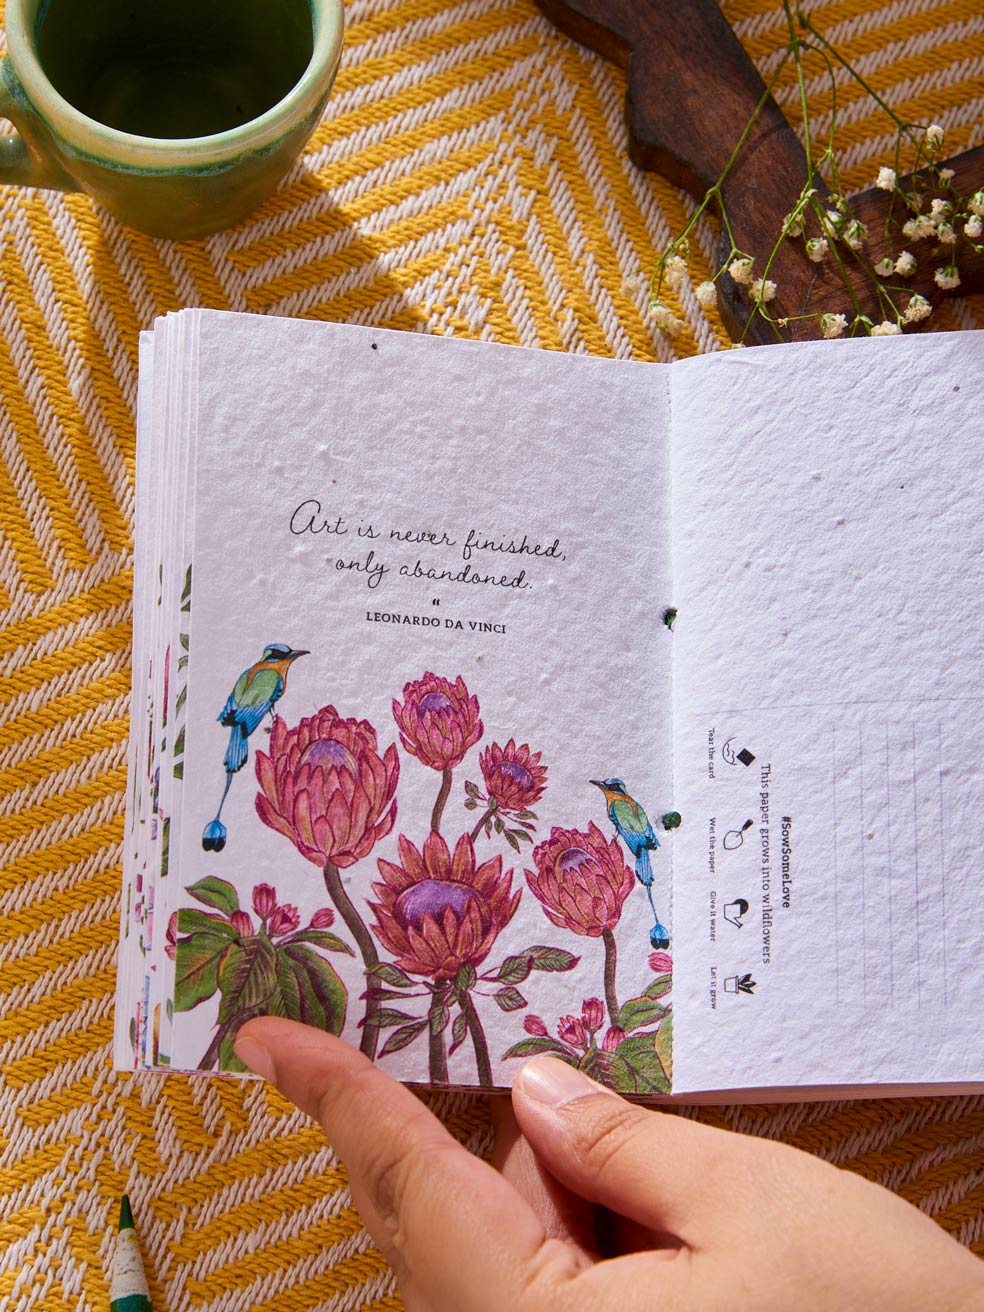 Art is never finished,
only abandoned.
“
LEONARDO DA VINCI
#SowSomeLove
This paper grows into wildflowers
Tear the card
Wet the paper
Give it water
Let it grow